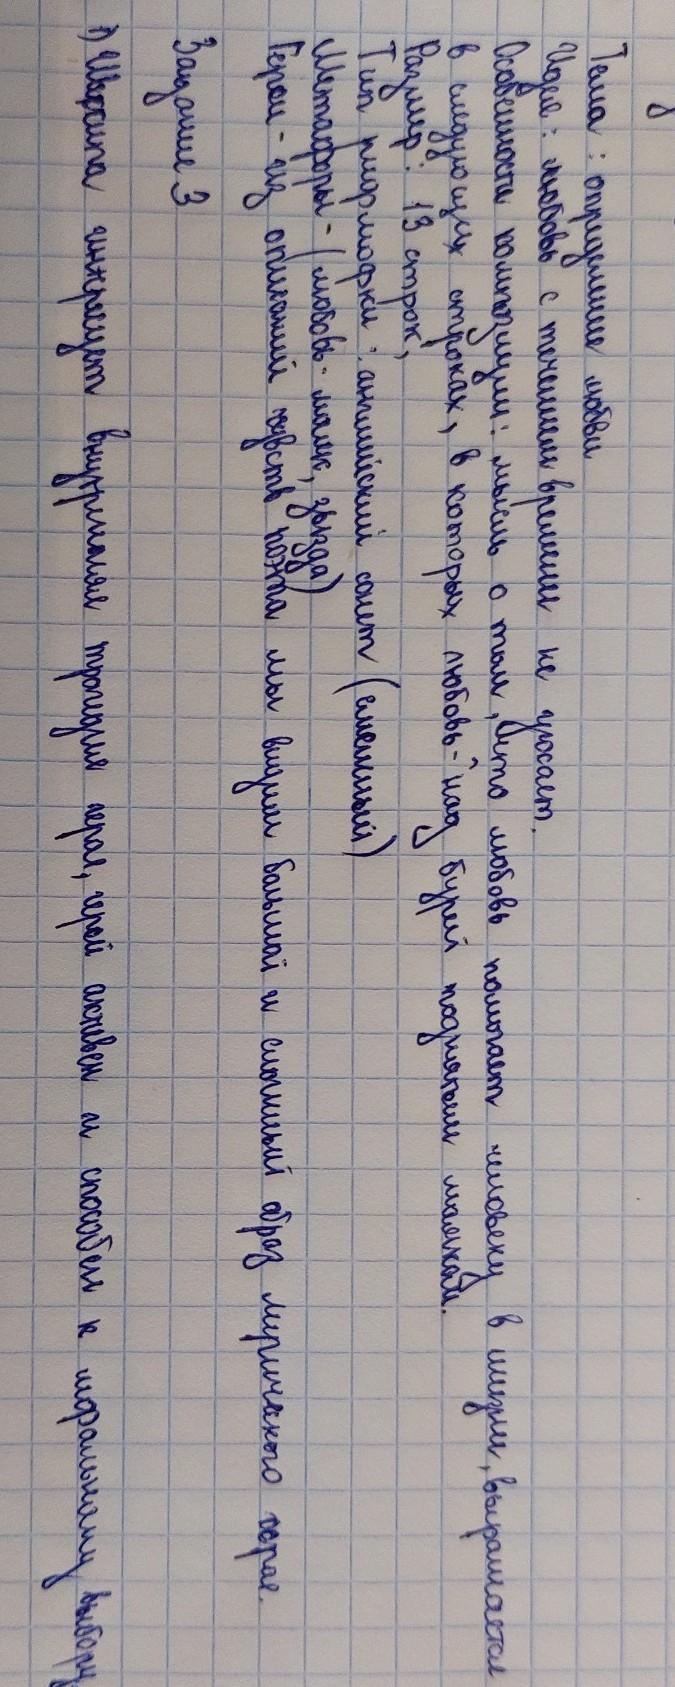 Тема : определение любви
Идея : любовь с течением времени не угасает.
Особенности композиции: мысль о том, что любовь помогает человеку в жизни, выражается
в следующих строках, в которых любовь-"над бурей поднятый маяком.
Размер: 13 строк,
Тип рифмофки : английский сонет (смежный)
Метафоры- (любовь- маяк, звезда)
Герои - из описаний чувств поэта мы видим большой и сложный образ лиричского героя.
Задание 3
1) Шекспира интресует внутренняя трагедия героя, герой активен и способен к моральному выбору